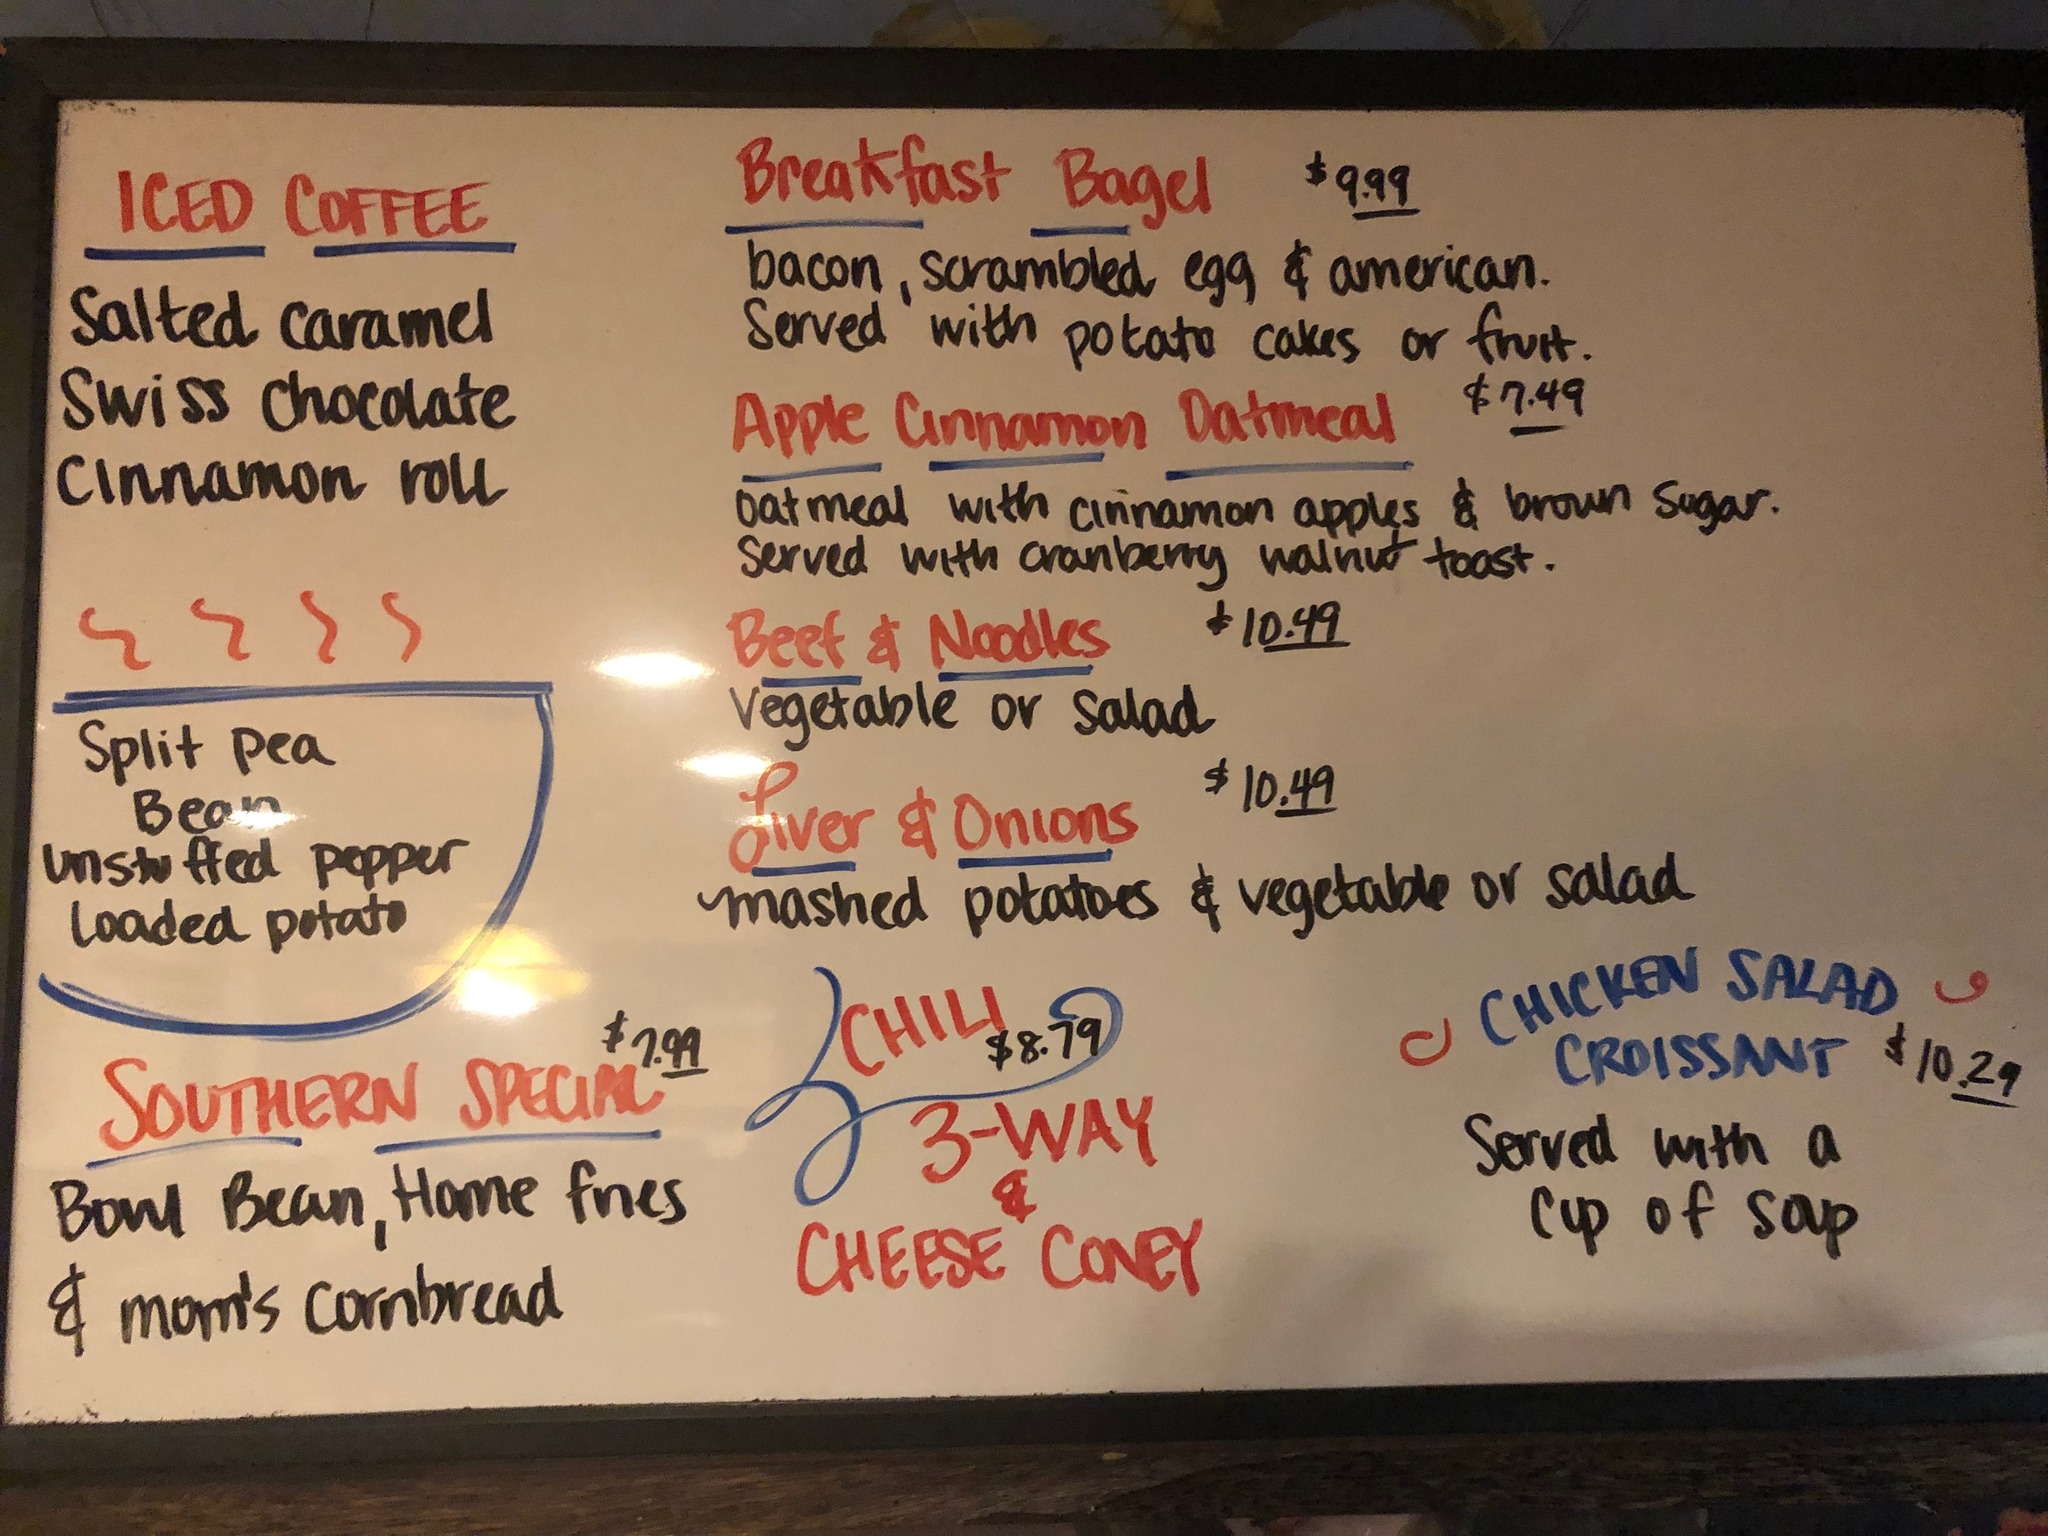 ICED COFFEE
Salted caramel
Swiss chocolate
Cinnamon roll
Split pea
Bean
unstuffed pepper
loaded potato
$7.99
SOUTHERN SPECIAL
Bowl Bean, Home fries
& mom's cornbread
Breakfast Bagel $9.99
bacon, scrambled egg & american.
Served with potato cakes or fruit.
Apple Cinnamon Oatmeal $7.49
oatmeal with cinnamon apples & brown sugar.
Served with cranberry walnut toast.
Beef & Noodles $10.49
vegetable or salad
Liver & Onions $10.49
mashed potatoes & vegetable or salad
CHILI
$8.79
3-WAY
&
CHEESE CONEY
CHICKEN SALAD
CROISSANT $10.29
Served with a
cup of soup